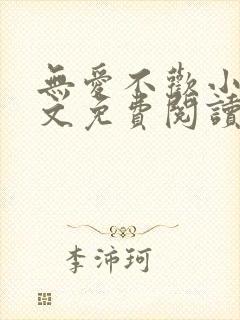 無愛不歡小
文免費閱讀
李沛珂